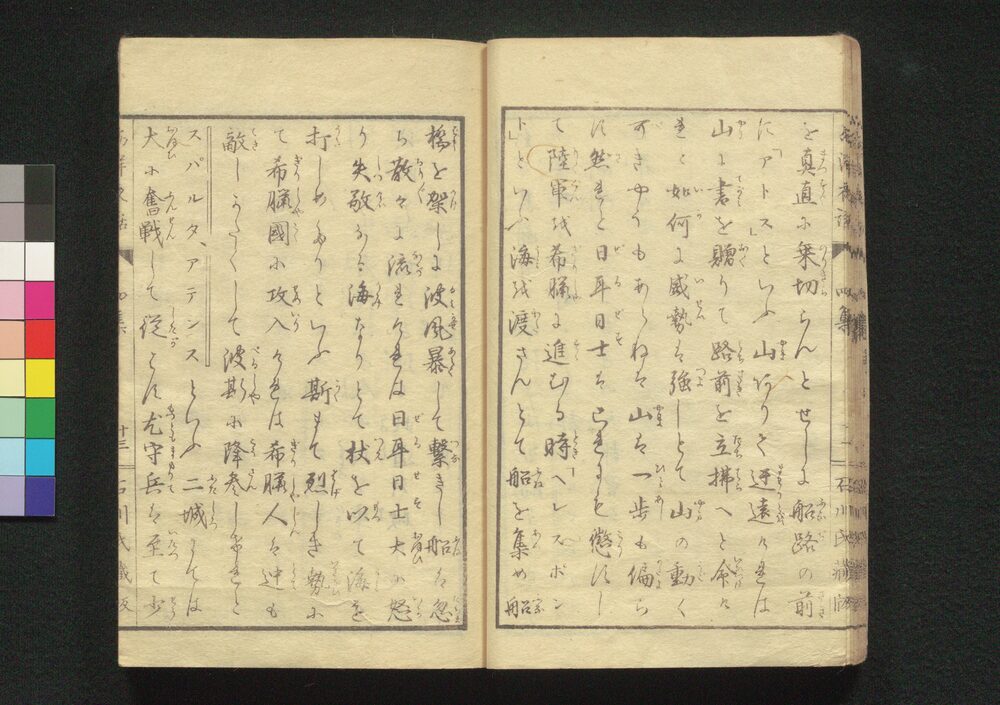 を真直に乗切らんとせしに船路の前
に「アトス」といふ山ありて迂遠ければ
山に書を贈りて路前を立拂へと命け
れど如何に威勢は強しとて山の動く
べきやうもあらねば山は一歩も偏ら
ず然れど日耳日士は己れにも懲ずし
て陸軍を希臘に進むる時「ヘレスポン
ト」といふ海を渡さんとて船を集め船
橋を架しに波風暴くして繋ぎし船は忽
ち散々に流れければ日耳日士大に怒
り失敬なる海なりとて杖を以て海を
打しめたりといふ斯もて烈しき勢に
て希臘國に攻入ければ希臘人は迚も
敵しがたくして波斯に降参しけれど
スパルタ、アテンスといふ二城にては
大に奮戰して從
守兵は至て少
四集
十三
石川氏蔵版
四集
石川氏蔵版